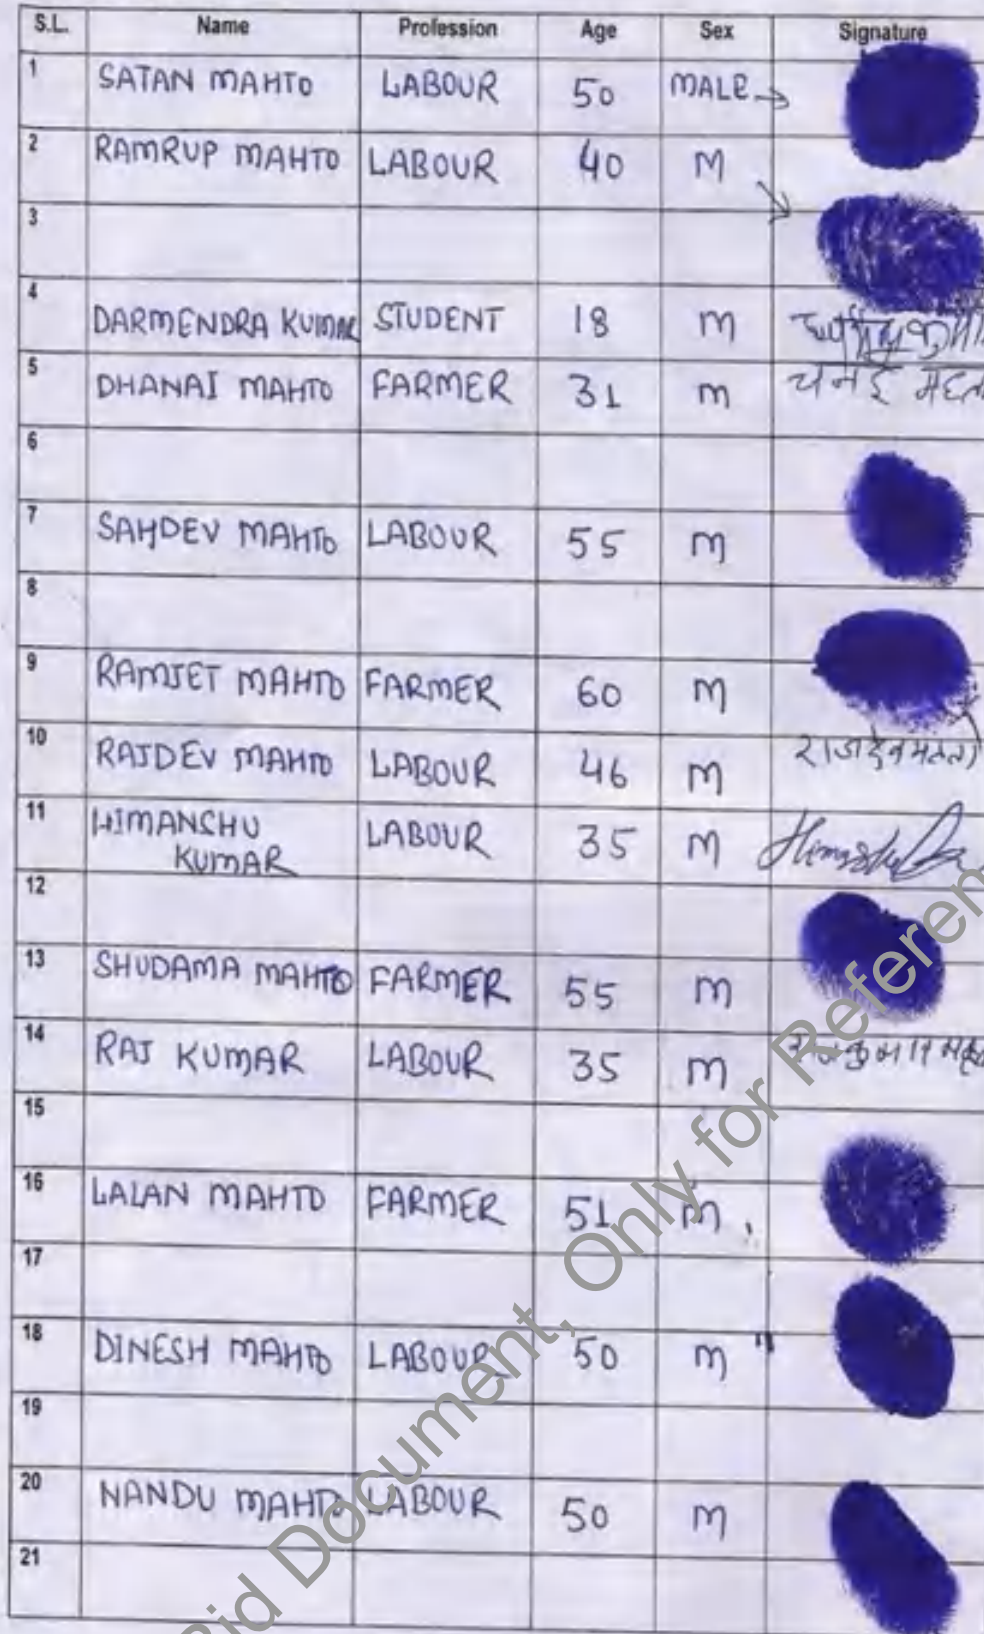 S.L. Name Profession Age Sex Signature
1 SATAN MAHTO LABOUR 50 MALE
2 RAMRUP MAHTO LABOUR 40 M
3
4 DARMENDRA KUMAR STUDENT 18 M
5 DHANAI MAHTO FARMER 31 M
6
7 SAHDEV MAHTO LABOUR 55 M
8
9 RAMJET MAHTO FARMER 60 M
10 RAJDEV MAHTO LABOUR 46 M
11 HIMANSHU LABOUR 35 M
KUMAR
12
13 SHUDAMA MAHTO FARMER 55 M
14 RAJ KUMAR LABOUR 35 M
15
16 LALAN MAHTO FARMER 51 M
17
18 DINESH MAHTO LABOUR 50 M "
19
20 NANDU MAHTO LABOUR 50 M
21
Bid Document, Only for Referen